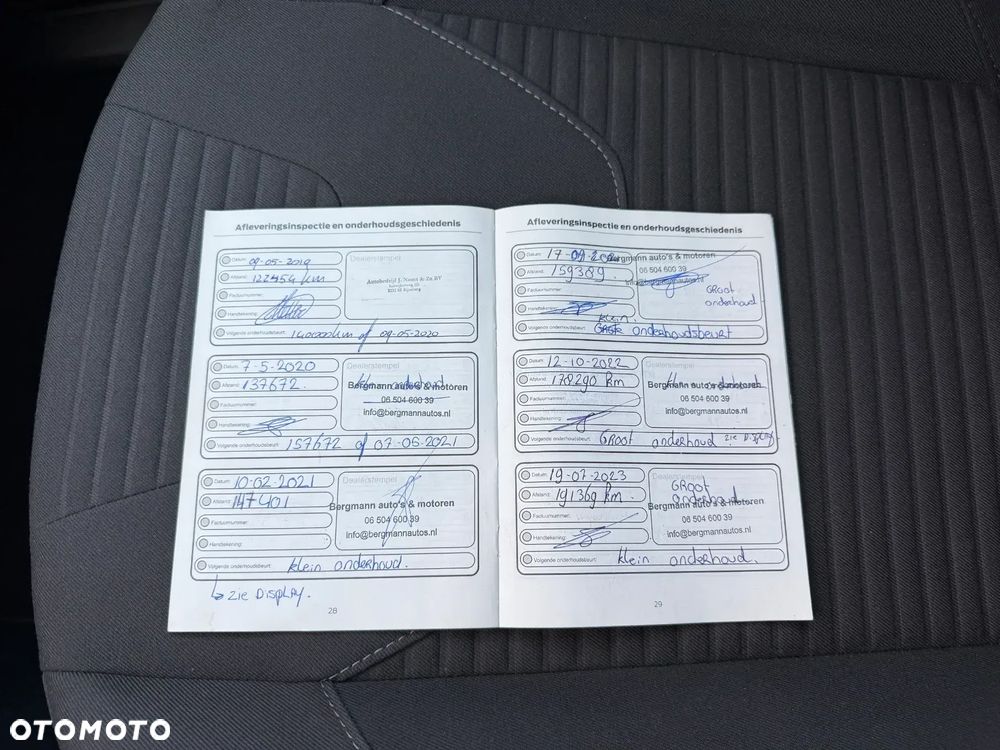 Afleveringsinspectie en onderhoudsgeschiedenis
Datum: 09-05-2019
Afstand: 122454 km
Dealerstempel
Factuurnummer:
Handtekening:
Volgende onderhoudsbeurt: 140000 km of 09-05-2020
Datum: 7-5-2020
Afstand: 137672.
Dealerstempel
Bergmann auto's & motoren
06 504 600 39
info@bergmannautos.nl
Factuurnummer:
Handtekening:
Volgende onderhoudsbeurt: 157672 of 07-05-2021
Datum: 10-02-2021
Afstand: 147401
Dealerstempel
Bergmann auto's & motoren
06 504 600 39
info@bergmannautos.nl
Factuurnummer:
Handtekening:
Volgende onderhoudsbeurt: klein onderhoud.
↳ zie Display.
28
Afleveringsinspectie en onderhoudsgeschiedenis
Datum: 17-09-
Afstand: 159389
Bergmann auto's & motoren
06 504 600 39
info@bergmannautos.nl
GRoot
onderhoud
Factuurnummer:
Handtekening:
klein.
Volgende onderhoudsbeurt: onderhoudsbeurt
Datum: 12-10-2022
Afstand: 178290 km
Dealerstempel
Bergmann auto's & motoren
06 504 600 39
info@bergmannautos.nl
Factuurnummer:
Handtekening:
Volgende onderhoudsbeurt: GRoot onderhoud zie Display
Datum: 19-07-2023
Afstand: 191369 km.
Dealerstempel
GRoot
onderhoud.
Bergmann auto's & motoren
06 504 600 39
info@bergmannautos.nl
Factuurnummer:
Handtekening:
Volgende onderhoudsbeurt: klein onderhoud.
29
OTOMOTO